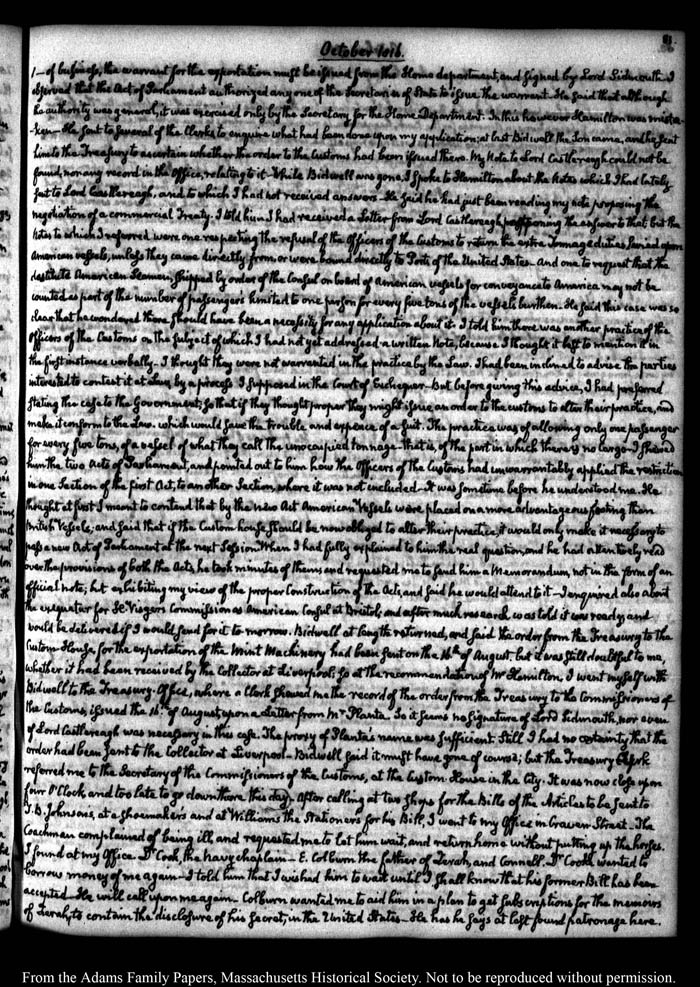 81
October 1816.
1— of business, the warrant for the exportation must be issued from the Home department, and signed by Lord Sidmouth. I
observed that the Act of Parliament authorized any one of the Secretaries of State to issue the warrant. He said that although
the authority was general, it was exercised only by the Secretary for the Home Department. In this however Hamilton was mista-
ken— He sent to several of the Clerks to enquire what had been done upon my application; at last Bidwell the Son came, and he sent
him to the Treasury to ascertain whether the order to the Customs had been issued there. My Note to Lord Castlereagh could not be
found, nor any record in the Office, relating to it. While Bidwell was gone, I spoke to Hamilton about the Notes which I had lately
sent to Lord Castlereagh, and to which I had not received answers. He said he had just been reading my note proposing the
negotiation of a commercial Treaty. I told him I had received a Letter from Lord Castlereagh postponing the answer to that; but the
Notes to which I referred were one respecting the refusal of the Officers of the Customs to return the extra Tonnage duties levied upon
American vessels, unless they came directly from, or were bound directly to Ports of the United States— And one to request that the
destitute American Seamen, shipped by order of the Consul on board of American vessels for conveyance to America may not be
counted as part of the number of passengers limited to one person for every five tons of the vessels burthen. He said this case was so
clear that he wondered there should have been a necessity for any application about it. I told him there was another practice of the
Officers of the Customs on the subject of which I had not yet addressed a written Note, because I thought it best to mention it in
the first instance verbally. I thought they were not warranted in the practice by the Law. I had been inclined to advise the parties
interested to contest it at Law, by a process I supposed in the Court of Exchequer— But before giving this advice, I had preferred
stating the case to the Government, so that if they thought proper they might issue an order to the customs to alter their practice, and
make it conform to the Law, which would save the trouble and expence of a suit. The practice was of allowing only one passenger
for every five tons, of a vessel of what they call the unoccupied tonnage— that is, of the part in which there is no cargo— I shewed
him the two Acts of Parliament, and pointed out to him how the Officers of the Customs had unwarrantably applied the restriction
in one Section of the first Act, to another Section, where it was not included— It was sometime before he understood me. He
thought at first I meant to contend that by the new Act American Vessels were placed on a more advantageous footing than
British Vessels; and said that if the Custom house should be now obliged to alter their practice, it would only make it necessary to
pass a new Act of Parliament at the next Session. When I had fully explained to him the real question, and he had attentively read
over the provisions of both the Acts, he took minutes of them and requested me to send him a Memorandum, not in the form of an
official note, but exhibiting my view of the proper Construction of the Acts, and said he would attend to it— I enquired also about
the exequatur for Visgers Commission as American Consul at Bristol, and after much research was told it was ready, and
would be delivered if I would send for it to morrow. Bidwell at length returned, and said the order from the Treasury to the
Custom House, for the exportation of the Mint Machinery had been sent on the 16th of August, but it was still doubtful to me,
whether it had been received by the Collector at Liverpool; so at the recommendation of Mr Hamilton, I went myself with
Bidwell to the Treasury-Office, where a Clerk shewed me the record of the order from the Treasury to the Commissioners of
the Customs, issued the 16th of August upon a Letter from Mr Planta. So it seems no signature of Lord Sidmouth, nor even
of Lord Castlereagh was necessary in this case. The proxy of Planta's name was sufficient. Still I had no certainty that the
order had been sent to the Collector at Liverpool— Bidwell said it must have gone of course; but the Treasury Clerk
referred me to the Secretary of the Commissioners of the Customs, at the Custom-House in the City. It was now close upon
four O'Clock, and too late to go down there this day. After calling at two shops for the Bills of the Articles to be sent to
T. B. Johnson, at a shoemakers and at Williams the Stationers for his Bill, I went to my Office in Craven Street— The
Coachman complained of being ill and requested me to let him wait, and return home without putting up the horses.
I found at my Office. Dr Cook, the Navy chaplain— E. Colburn the father of Zerah, and Connell. Dr Cook wanted to
borrow money of me again— I told him that I wished him to wait until I shall know that his former Bill has been
accepted— He will call upon me again— Colburn wanted me to aid him in a plan to get subscriptions for the memoirs
of Zerah, to contain the disclosure of his secret, in the United States— He has he says at last found patronage here.
From the Adams Family Papers, Massachusetts Historical Society. Not to be reproduced without permission.